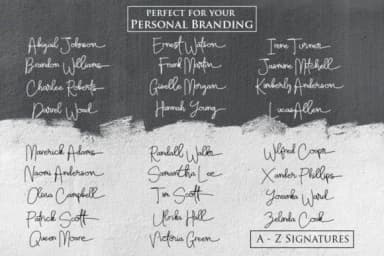 PERFECT FOR YOUR
PERSONAL BRANDING
Abigail Johnson
Ernest Watson
Irene Turner
Brandon Williams
Frank Martin
Jasmine Mitchell
Charlee Roberts
Giselle Morgan
Kimberly Anderson
Darrel Wood
Hannah Young
Lucas Allen
Maverick Adams
Randall Walker
Wilfred Cooper
Naomi Anderson
Samantha Lee
Xander Phillips
Clara Campbell
Tim Scott
Ward
Patrick Scott
Ulrika Hall
Zelinda Cook
Queen Moore
Victoria Green
A - Z SIGNATURES